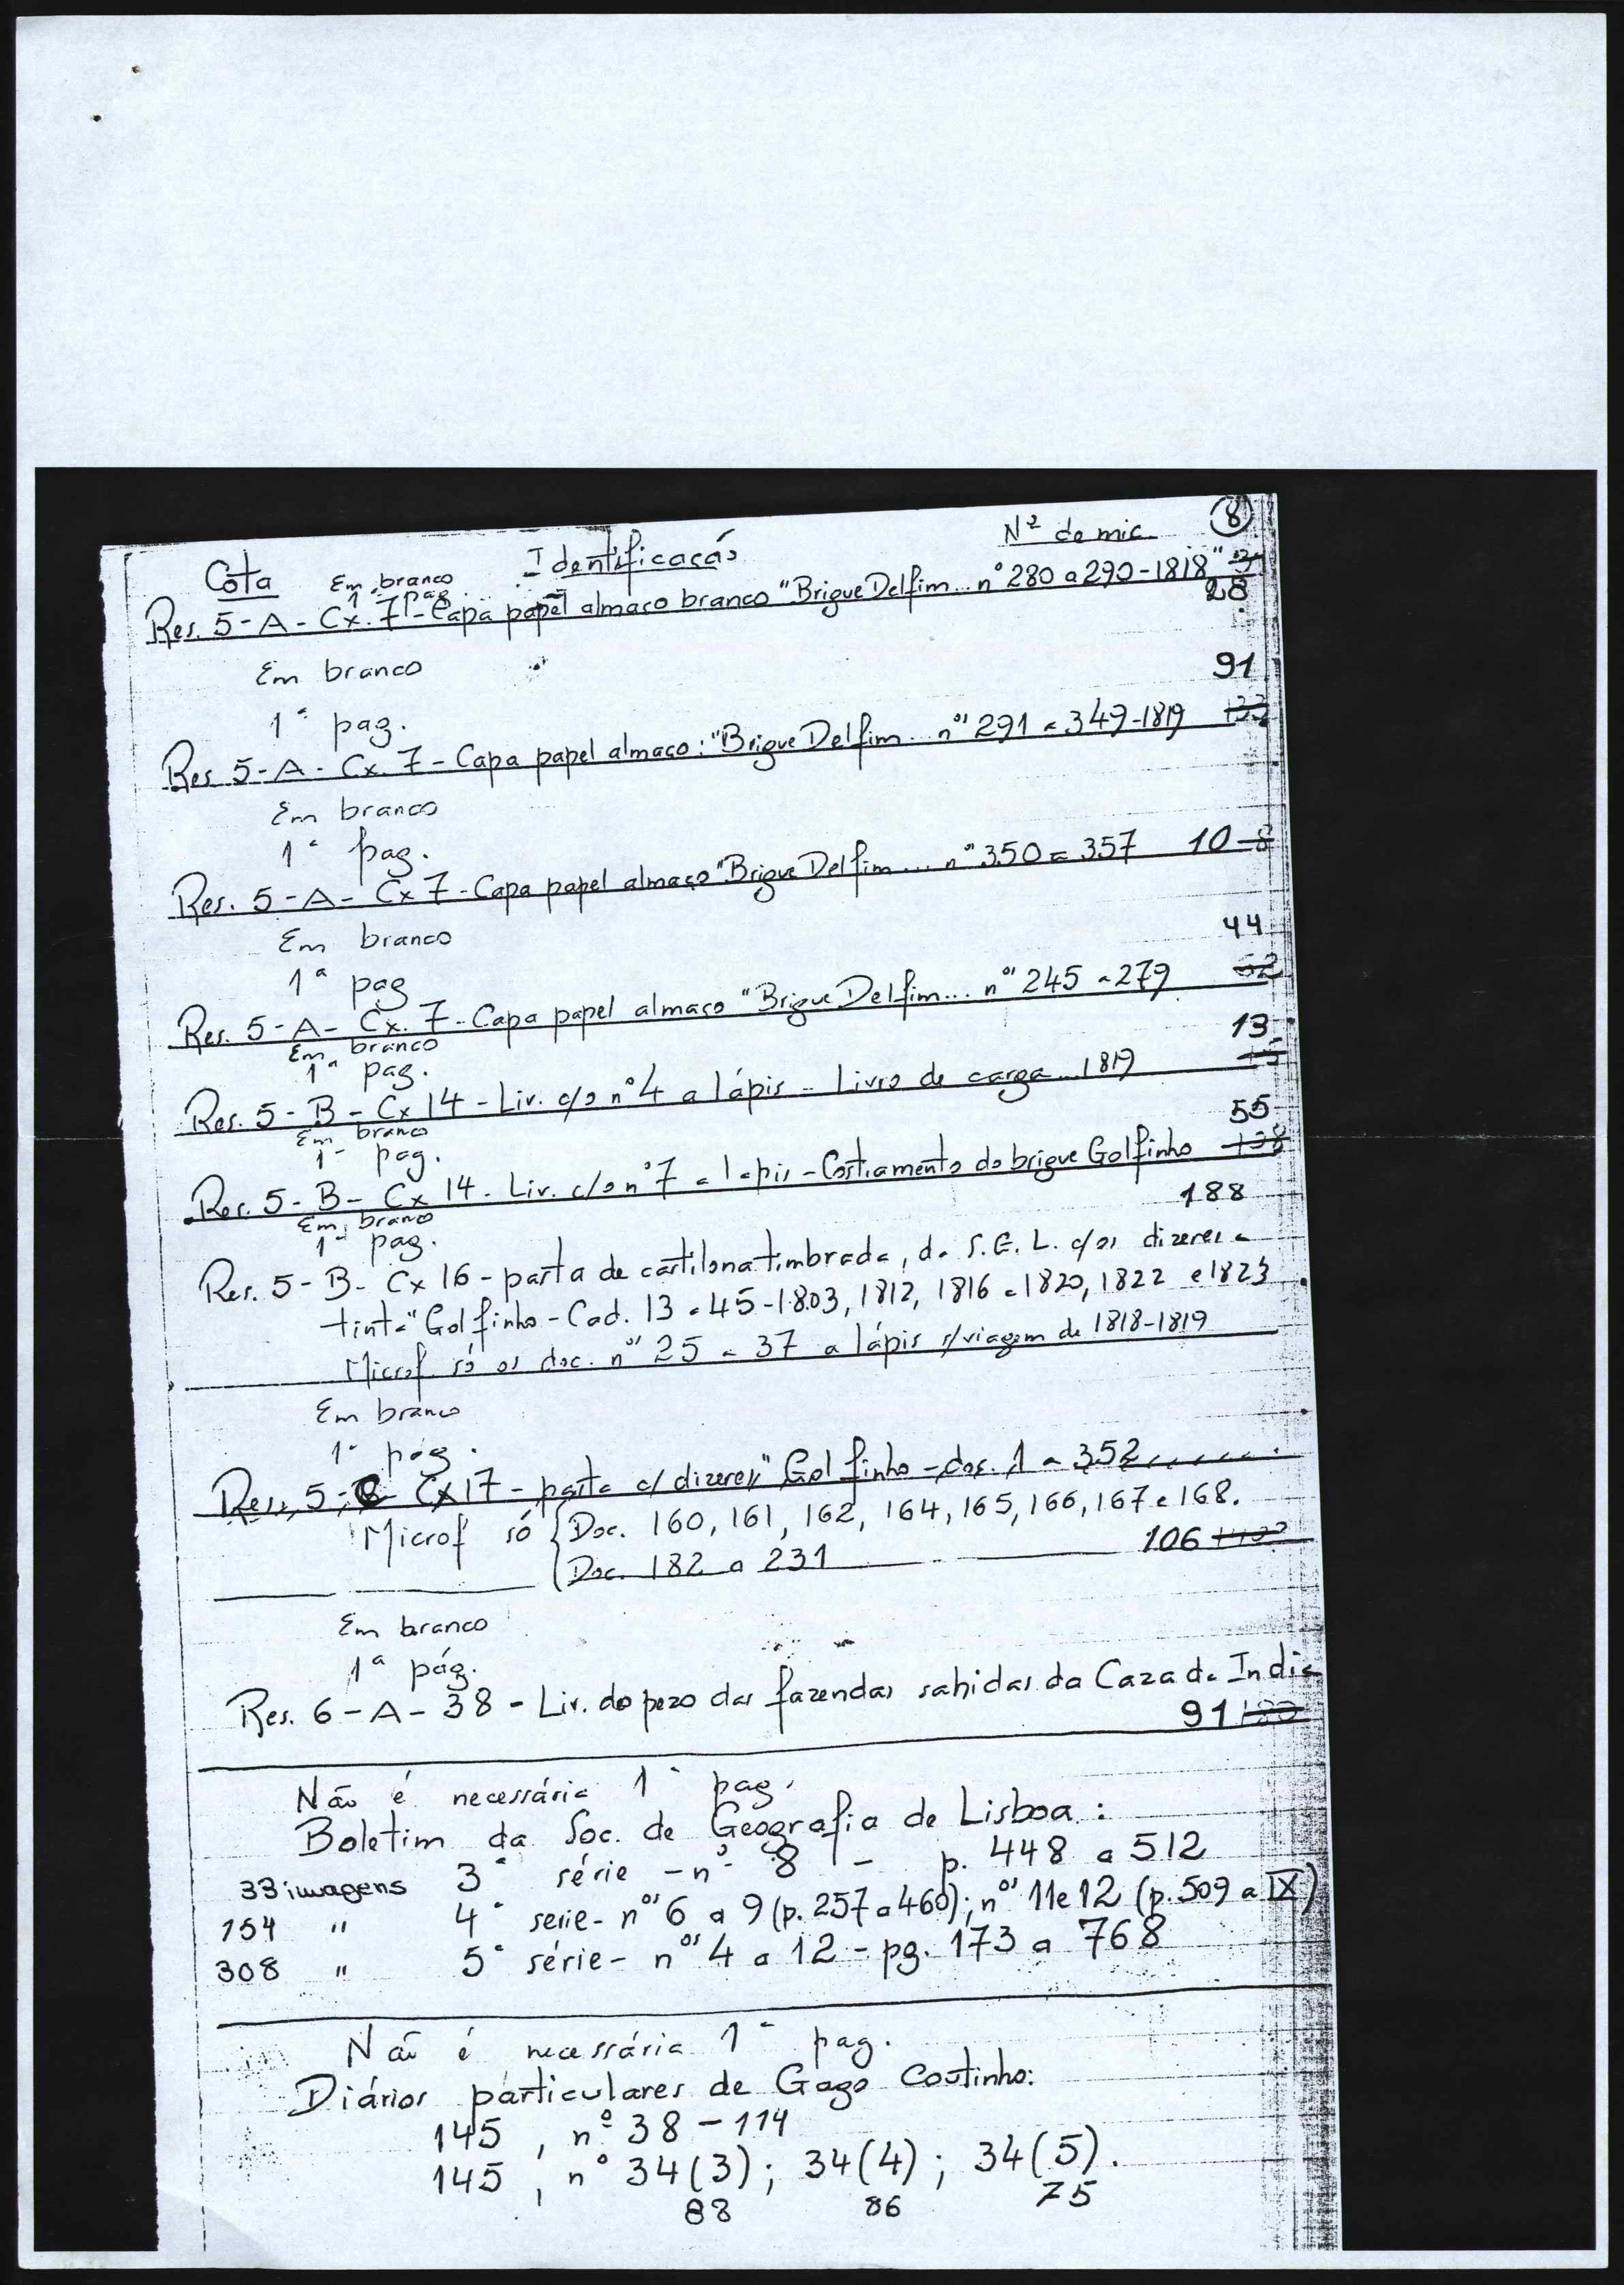 8
Cota Identificação Nº de mic.
Em branco
1ª pag.
Res. 5-A-Cx. 7 - Capa papel almaço branco "Brigue Delfim... nº 280 a 290-1818"
28
Em branco
91
1ª pag.
Res. 5-A-Cx. 7 - Capa papel almaço: "Brigue Delfim... nos 291 a 349-1819 133
Em branco
1ª pag.
Res. 5-A-Cx 7 - Capa papel almaço "Brigue Delfim.... nos 350 a 357 10 8
Em branco
44
1ª pag
Res. 5-A-Cx. 7 - Capa papel almaço "Brigue Delfim... nos 245 a 279 52
Em branco
13
1ª pag.
Res. 5-B-Cx 14 - Liv. c/o nº 4 a lápis - Livro de carga...1819
Em branco
55
1ª pag.
Res. 5-B-Cx 14 - Liv. c/o nº 7 a lapis - do brigue Golfinho 108
Em branco
188
1ª pag.
Res. 5-B-Cx 16 - pasta de cartolina timbrada, da S.G.L. c/os dizeres a
tinta "Golfinho - Cad. 13 a 45-1803, 1812, 1816 a 1820, 1822 e 1823
Microf. só os doc. nos 25 a 37 a lápis s/viagem de 1818-1819
Em branco
1ª pág.
Res. 5- Cx17 - pasta c/ dizeres "Golfinho - doc. 1 a 352
Microf só { Doc. 160, 161, 162, 164, 165, 166, 167 e 168.
Doc. 182 a 231 106
Em branco
1ª pág.
Res. 6-A-38 - Liv. do pezo das fazendas sahidas da Caza da India
91
Não é necessária 1ª pag.
Boletim da Soc. de Geografia de Lisboa:
33 imagens 3ª série - nº 8 - p. 448 a 512
154 " 4ª serie - nos 6 a 9 (p. 257 a 460); nos 11 e 12 (p. 509 a IX)
308 " 5ª série - nos 4 a 12 - pg. 173 a 768
Não é necessária 1ª pag.
Diários particulares de Gago Coutinho:
145, nº 38 - 114
145, nº 34(3); 34(4); 34(5).
88 86 75